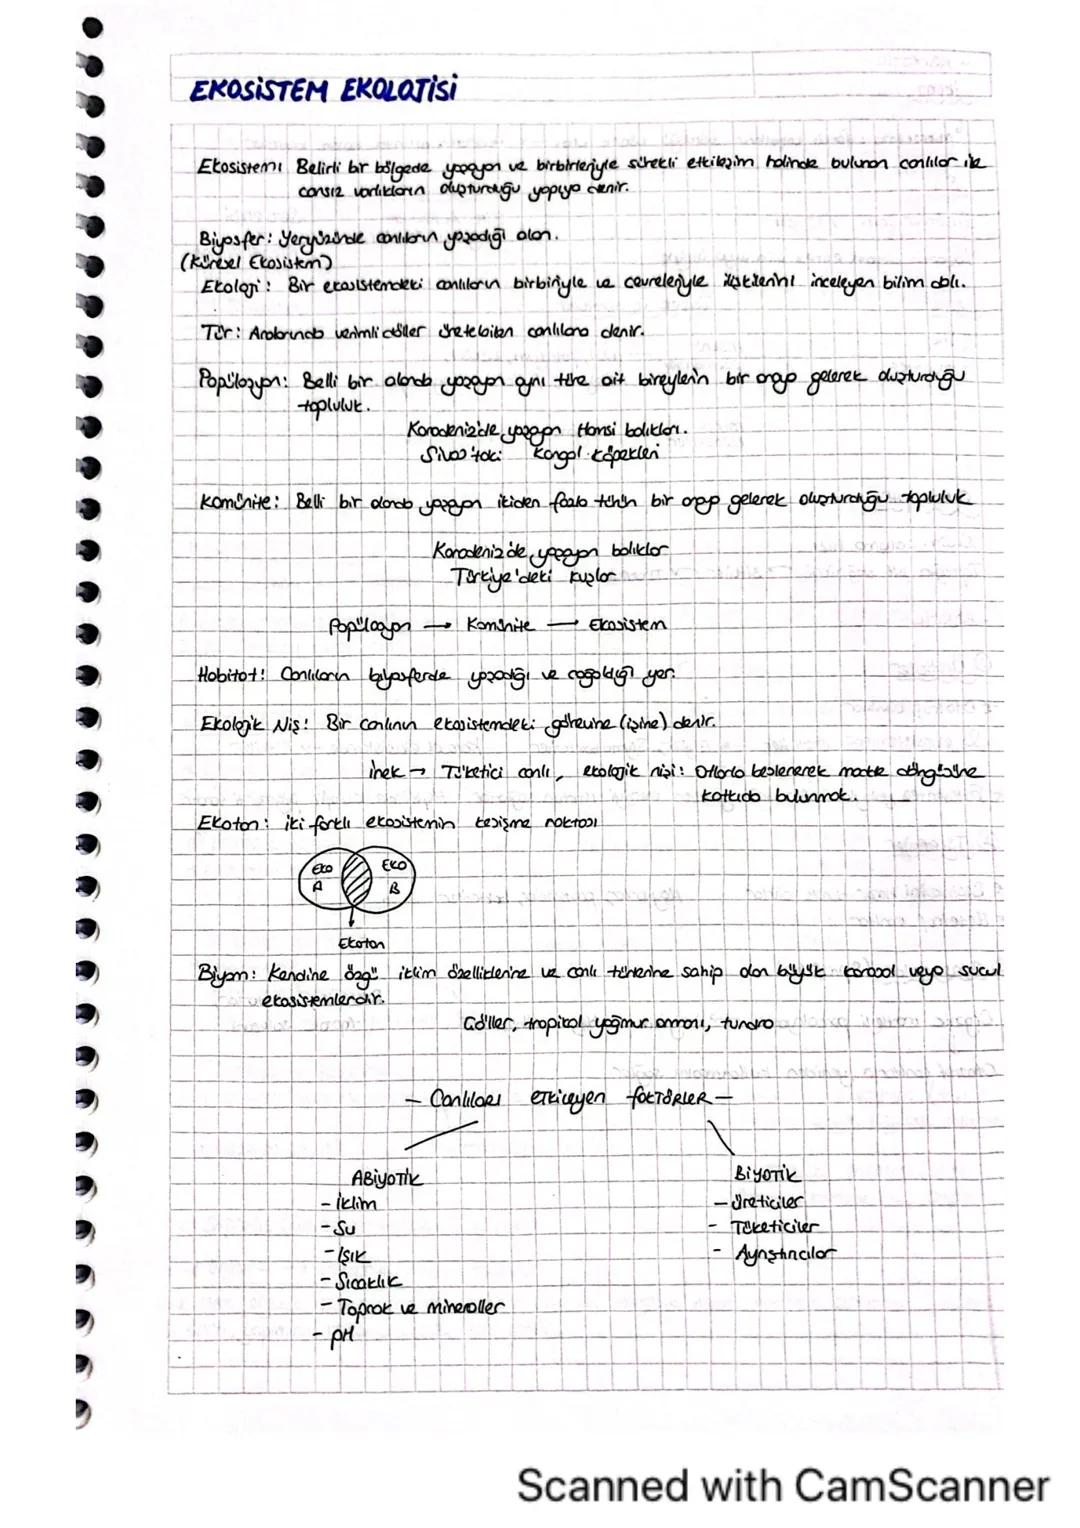 EKOSİSTEM EKOLOJİSİ
Ekosistem: Belirli bir bölgede yaşayan ve birbirleriyle sürekli etkileşim halinde bulunan canlılar ile
cansız varlıkların oluşturduğu yapıya denir.
Biyosfer: Yeryüzünde canlıların yaşadığı alan.
(Küresel Ekosistem)
Ekoloji: Bir ekosistemdeki canlıların birbiriyle ve çevreleriyle ilişkilerini inceleyen bilim dalı.
Tür: Aralarında verimli döller üretebilen canlılara denir.
Popülasyon: Belli bir alanda yaşayan aynı türe ait bireylerin bir araya gelerek oluşturduğu
topluluk.
Karadeniz'de yaşayan Hamsi balıkları.
Sivas'taki Kangal köpekleri
Komünite: Belli bir alanda yaşayan ikiden fazla türün bir araya gelerek oluşturduğu topluluk
Karadeniz'de yaşayan balıklar
Türkiye'deki kuşlar
Popülasyon → Komünite → Ekosistem
Habitat: Canlıların biyosferde yaşadığı ve çoğaldığı yer.
Ekolojik Niş: Bir canlının ekosistemdeki görevine (işine) denir.
İnek → Tüketici canlı, ekolojik nişi: Otlarla beslenerek madde döngüsüne
katkıda bulunmak.
Ekoton: iki farklı ekosistemin kesişme noktası
Eko A Eko B
Ekoton
Biyom: Kendine özgü iklim özelliklerine ve canlı türlerine sahip olan büyük karasal veya sucul
ekosistemlerdir.
Göller, tropikal yağmur ormanı, tundra
- Canlıları etkileyen faktörler -
Abiyotik
- İklim
- Su
- Işık
- Sıcaklık
- Toprak ve mineraller
- pH
Biyotik
- Üreticiler
- Tüketiciler
- Ayrıştırıcılar
Scanned with CamScanner